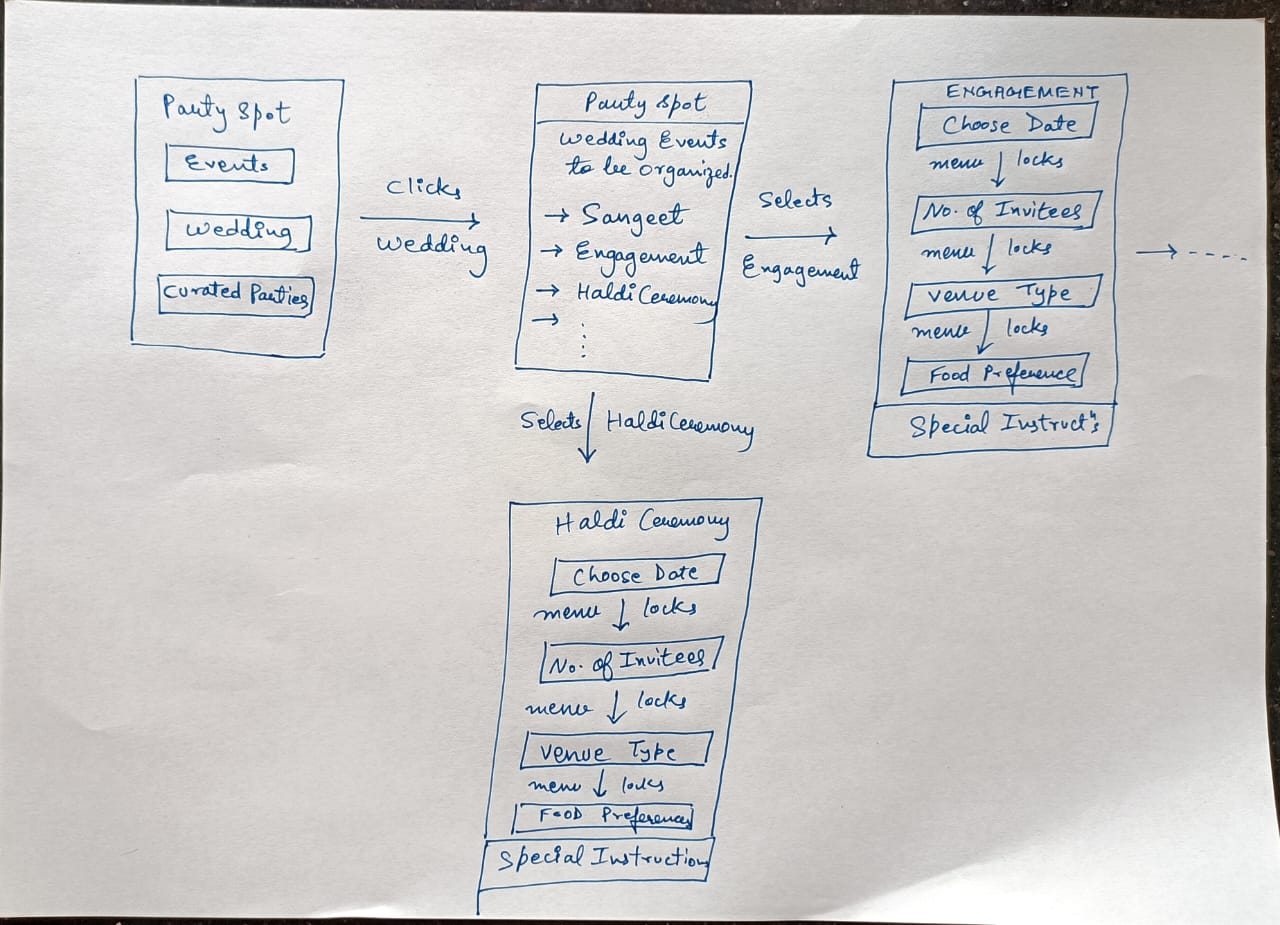 Party Spot
Events
Wedding
Curated Parties
Clicks
Wedding
Party Spot
Wedding Events
to be organized.
→ Sangeet
→ Engagement
→ Haldi Ceremony
→
Selects
Engagement
ENGAGEMENT
Choose Date
menu ↓ locks
No. of Invitees
menu ↓ locks
Venue Type
menu ↓ locks
Food Preference
Special Instructⁿs
→ -----
Selects ↓ Haldi Ceremony
Haldi Ceremony
Choose Date
menu ↓ locks
No. of Invitees
menu ↓ locks
Venue Type
menu ↓ locks
FOOD Preferences
Special Instructions